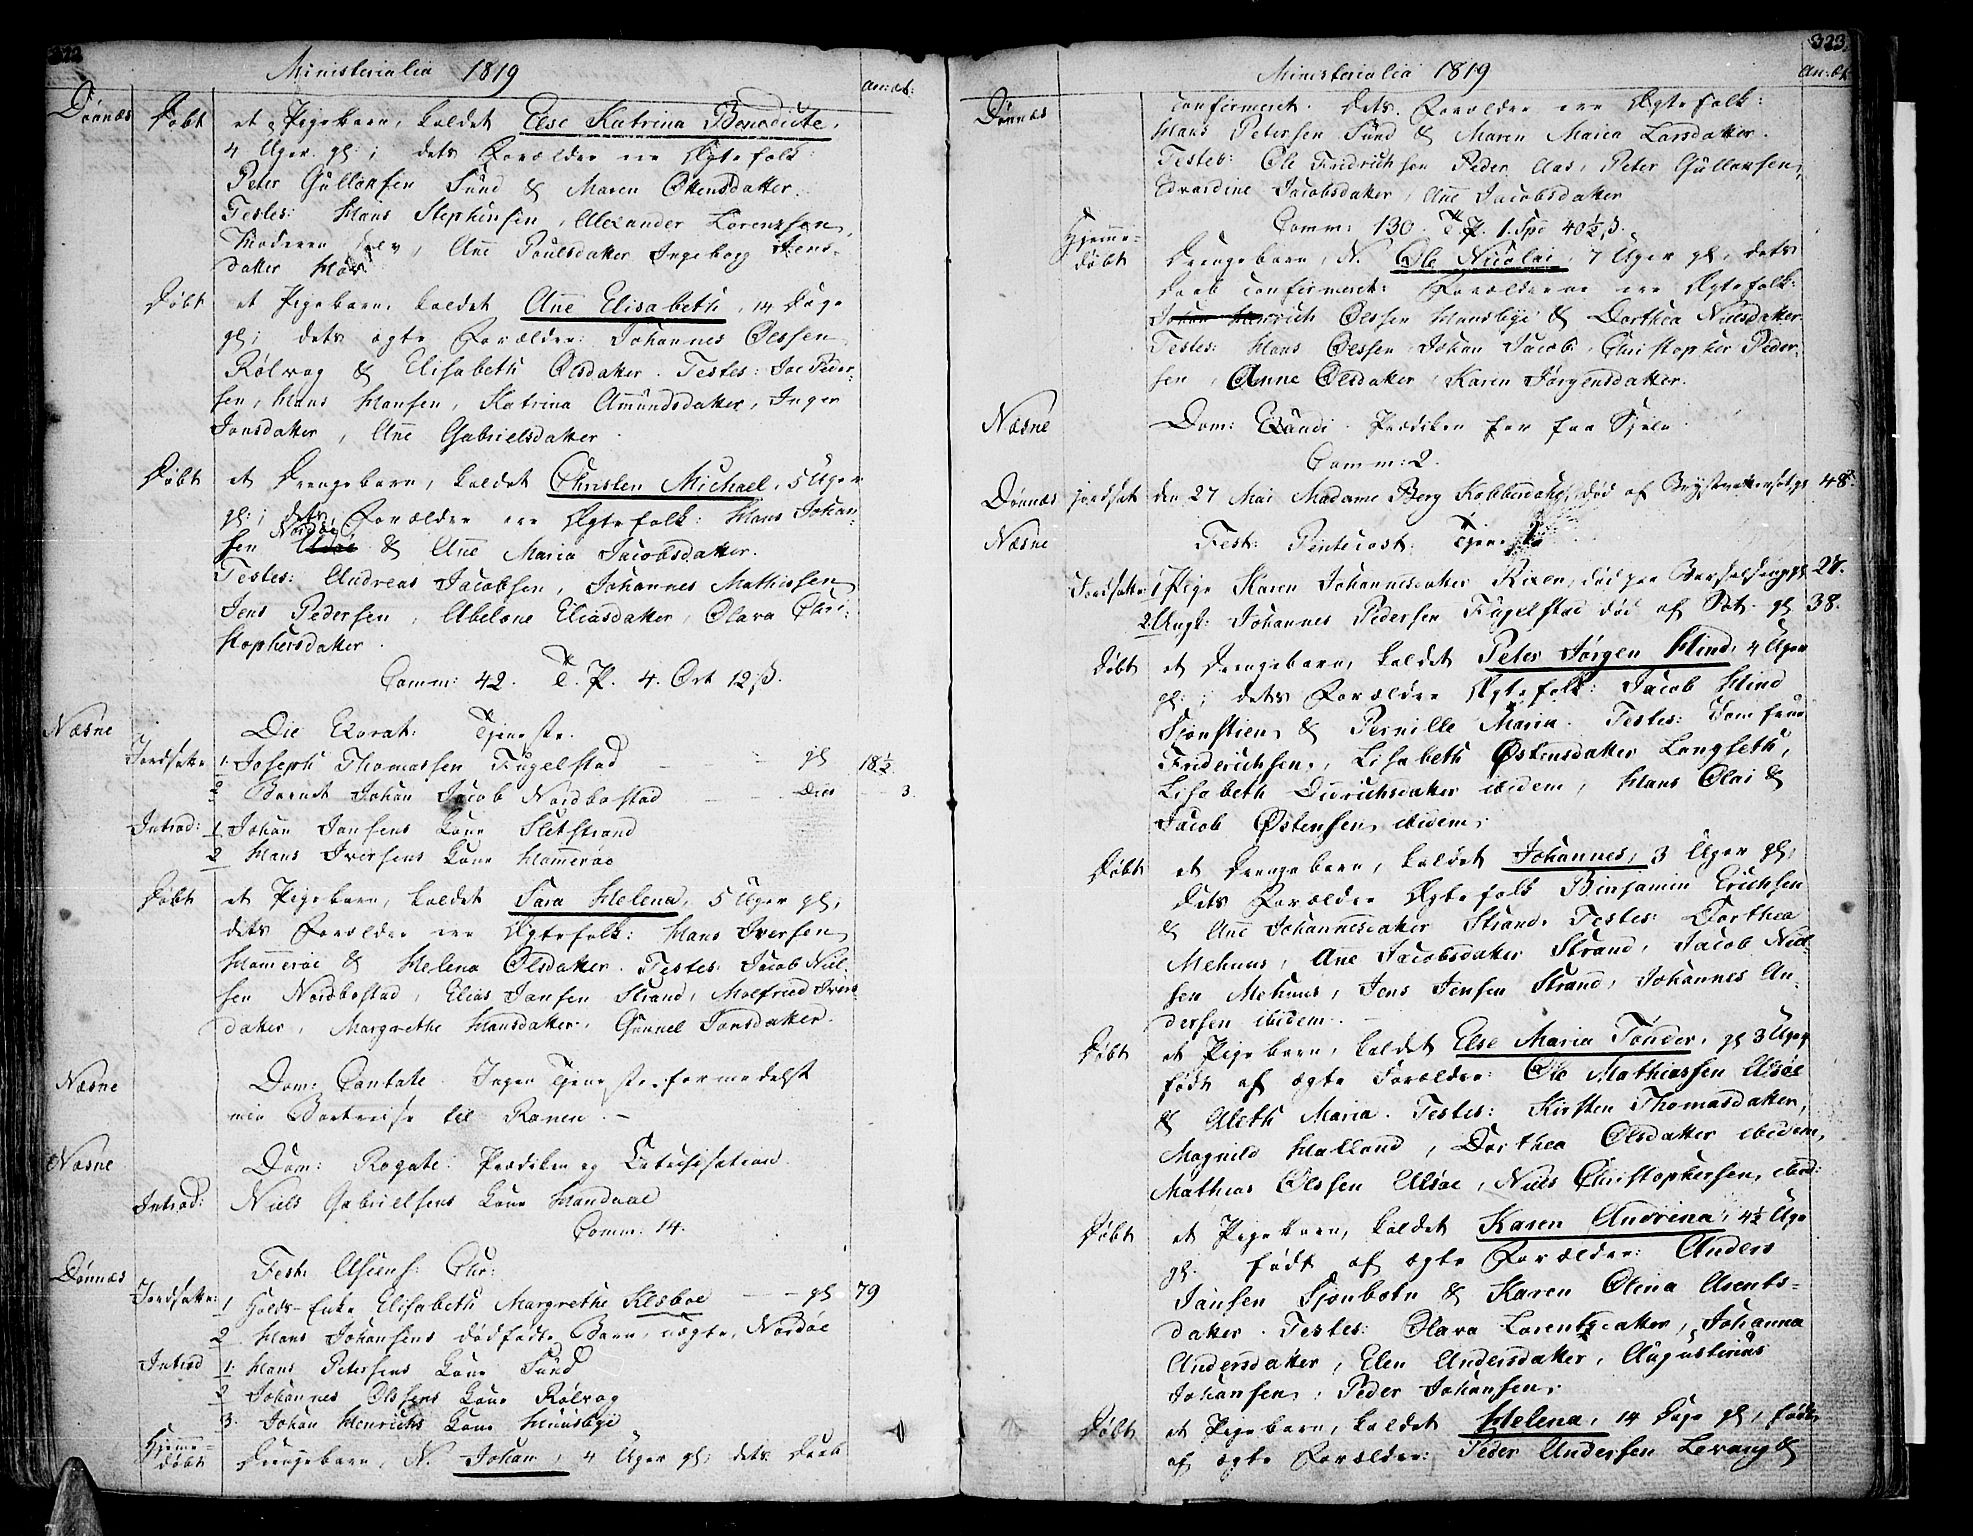 322
Ministerialia 1819
an: æt:
Dönnæs Döbt et Pigebarn, kaldet Else Katrina Benedicte,
4 Uger gl:; dets Forældre ere Ægtefolk:
Peter Gullaksen Sund & Maren Ottensdatter.
Testes: Hans Stephensen, Alexander Lorentzsen,
Moderen selv, Añe Poulsdatter Ingeborg Jens-
datter
Döbt et Pigebarn, kaldet Añe Elisabeth, 14 Dage
gl; dets ægte Forældre: Johannes Olssen
Rölvog & Elisabeth Olsdatter. Testes: Joe Peder-
sen, Hans Hansen, Katrina Amundsdatter, Inger
Jonsdatter, Añe Gabrielsdatter.
Döbt et Drengebarn, kaldet Christen Michael, 5 Uger
gl:; dets Forældre ere Ægtefolk: Hans Johan-
sen Nordöe & Añe Maria Jacobsdatter.
Testes: Andreas Jacobsen, Johannes Mathissen
Jens Pedersen, Abelone Eliasdatter, Olava Chri-
stophersdatter.
Comm: 42. T. P. 4. Ort 12 ß.
Næsne Die Exorat: Tjeneste.
Jordsatte 1. Joseph Thomassen Fugelstad gl 18½
2 Barnet Johan Jacob Nordbostad Dito 3.
Introd: 1. Johan Jansens Kone Sletstrand
2 Hans Iversens Kone Hameröe
Döbt et Pigebarn, kaldet Sara Helena, 5 Uger gl;
dets Forældre ere Ægtefolk: Hans Iversen
Hameröe & Helena Olsdatter. Testes: Jacob Niel-
sen Nordbostad, Elias Jansen Strand, Malfried Ivers-
datter, Margrethe Hansdatter, Gunnel Jonsdatter.
Næsne Dom: Cantate. Ingen Tjeneste formedelst
min Bortreise til Ranen. –
Næsne Dom: Rogate: Prædiken og Catechisation.
Introd: Niels Gabrielsens Kone Handnæe
Comm: 14.
Dönnæs Fest: Ascens: Chr:
Jordsatte: 1 Enke Elisabeth Margrethe Klæboe gl 79
2 Hans Johansens dödfödte Barn, uægte, Nordöe
Introd 1: Hans Petersens Kone Sund
2 Johannes Olssens Kone Rölvog
3. Johan Henrichs Kone Huusbye
Hjemme-
döbt Drengebarn, N. Johan, 4 Uger gl; dets Daab
323
Ministerialia 1819
an: æt
Dönnæs confirmeret. Dets Forældre ere Ægtefolk:
Hans Petersen Sund & Maren Maria Larsdatter.
Testes: Ole Fredrichsen Peder Aas, Peter Gullaksen,
Edvardine Jacobsdatter, Añe Jacobsdatter
Comm: 130. T. P. 1. Spd 40½ ß.
Hjemme-
döbt Drengebarn, N. Ole Nicolai, 7 Uger gl, dets
Daab confirmeret: Forældrene ere Ægtefolk:
Johan Henrich Olssen Huusbye & Dorthea Nielsdatter.
Testes: Hans Olssen Johan Jacob: Christopher Peder-
sen, Anne Olsdatter, Karen Jörgensdatter.
Næsne Dom: Exaudi. Prædiken for faa Sjele.
Comm: 2.
Dönnæs jordsat den 27 Mai Madame Berg Kobberdahl, död af Brystvattersot gl 48½
Næsne Fest: Pentecost: Tjeneste
Jordsatte 1 Pige Karen Johannesdatter Rixen, död paa Barselseng gl 27.
2. Ungk: Johannes Pedersen Fugelstad död af Sot gl 38.
Döbt et Drengebarn, kaldet Peter Jörgen Hind, 4 Uger
gl:; dets Forældre Ægtefolk: Jacob Hind
Sjonstien & Pernille Maria. Testes: Jomfrue
Friderichsen, Lisabeth Östensdatter Langseth,
Lisabeth Diderichsdatter ibidem, Hans Olai &
Jacob Östensen ibidem;
Döbt et Drengebarn, kaldet Johannes, 3 Uger gl;
dets Forældre Ægtefolk Binjamin Erichsen
& Añe Johannesdatter Strand. Testes: Dorthea
Mehuus, Añe Jacobsdatter Strand, Jacob Niel-
sen Mehuus, Jens Jensen Strand, Johannes An-
dersen ibidem. –
Döbt et Pigebarn, kaldet Else Maria Tönder, gl 3 Uger
födt af ægte Forældre: Ole Mathiassen Alsöe
& Aleth Maria. Testes: Kirsten Thomasdatter,
Magnild Halland, Dorthea Olsdatter ibidem,
Mathias Olssen Alsöe, Niels Christophersen, ibid:
Döbt et Pigebarn, kaldet Karen Andrina, 4½ Uge
gl: födt af ægte Forældre: Anders
Jansen Sjonbotn & Karen Olina Arents-
datter. Testes: Olava Lorentzdatter, Johanna
Andersdatter, Elen Andersdatter, Augustinus
Johansen, Peder Johansen.
Döbt et Pigebarn, kaldet Helena, 14 Dage gl, födt
af ægte Forældre: Peder Andersen Levang &